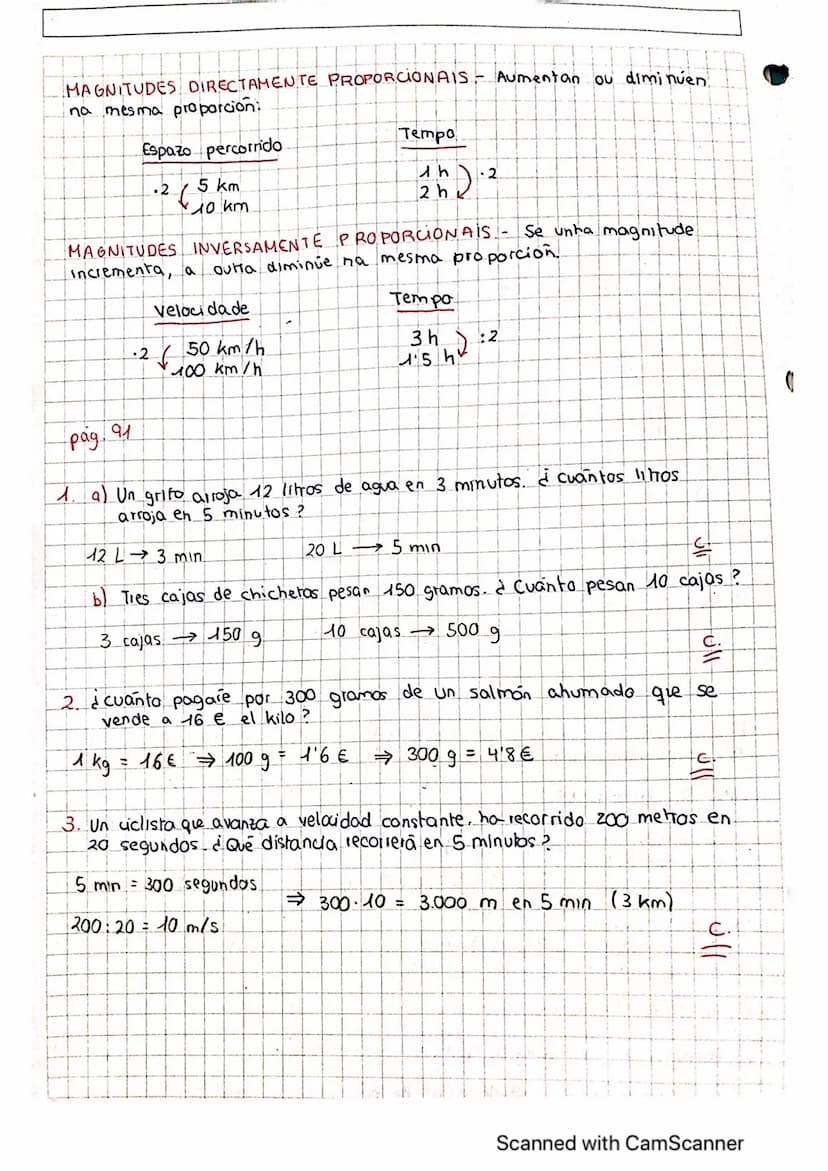 MAGNITUDES DIRECTAMENTE PROPORCIONAIS.- Aumentan ou diminúen
na mesma proporción:
Espazo percorrido Tempo
·2 5 km 1 h ·2
10 km 2 h
MAGNITUDES INVERSAMENTE PROPORCIONAIS.- Se unha magnitude
incrementa, a outra diminúe na mesma proporción.
Velocidade Tempo
·2 50 km/h 3 h :2
100 km/h 1'5 h
pág. 91
1. a) Un grifo arroja 12 litros de agua en 3 minutos. ¿Cuántos litros
arroja en 5 minutos?
12 L → 3 min 20 L → 5 min C.
b) Tres cajas de chichetas pesan 150 gramos. ¿Cuánto pesan 10 cajas?
3 cajas → 150 g 10 cajas → 500 g C.
2. ¿Cuánto pagaré por 300 gramos de un salmón ahumado que se
vende a 16 € el kilo?
1 kg = 16€ ⇒ 100 g = 1'6 € ⇒ 300 g = 4'8€ C.
3. Un ciclista que avanza a velocidad constante, ha recorrido 200 metros en
20 segundos. ¿Qué distancia recorrerá en 5 minutos?
5 min = 300 segundos
⇒ 300·10 = 3.000 m en 5 min (3 km)
200:20 = 10 m/s C.
Scanned with CamScanner